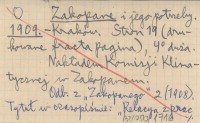 O Zakopane i jego potrzeby.
1909. Kraków. Stron 19 (dru-
kowane recta pagina), 4° ósia.
Nakładem Komisji Klima-
tycznej w Zakopanem.
Odb. z „Zakopanego” 2 (1908).
Tytuł w czasopiśmie: „Relacya z prac